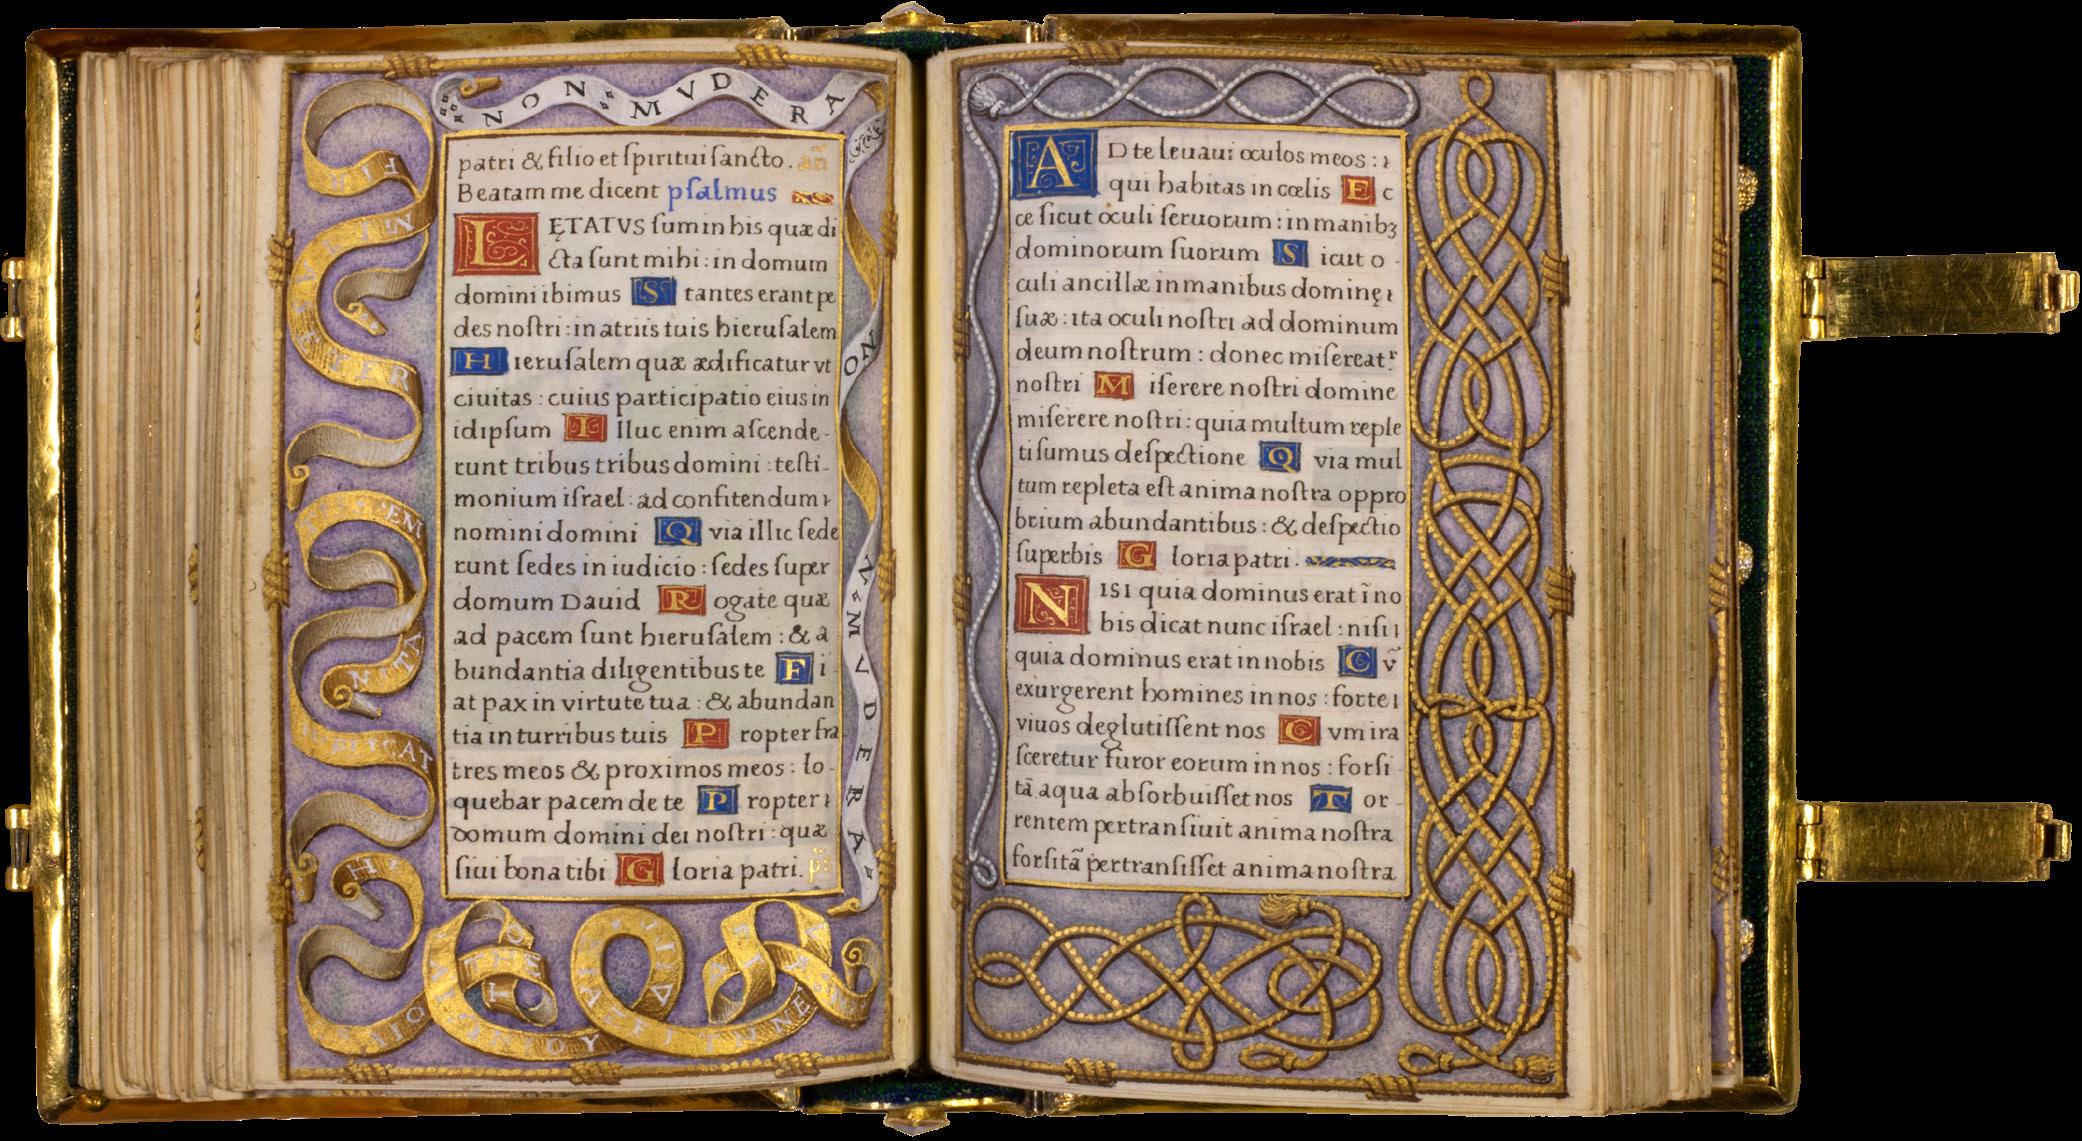 NON MVDERA
patri & filio et ſpiritui ſancto. an̄
Beatam me dicent pſalmus
LĘTATVS ſum in his quæ di
cta ſunt mihi : in domum
domini ibimus S tantes erant pe
des noſtri : in atriis tuis hieruſalem
H ieruſalem quæ ædificatur vt
ciuitas : cuius participatio eius in
idipſum I lluc enim aſcende-
runt tribus tribus domini : teſti-
monium iſrael : ad confitendum
nomini domini Q via illic ſede
runt ſedes in iudicio : ſedes ſuper
domum Dauid R ogate quæ
ad pacem ſunt hieruſalem : & a
bundantia diligentibus te F i-
at pax in virtute tua : & abundan
tia in turribus tuis P ropter fra
tres meos & proximos meos : lo-
quebar pacem de te P ropter
domum domini dei noſtri : quæ
ſiui bona tibi G loria patri. pſ̄
NO
N MVDERA
AD te leuaui oculos meos :
qui habitas in cœlis E c
ce ſicut oculi ſeruorum : in manibꝫ
dominorum ſuorum S icut o-
culi ancillæ in manibus dominę
ſuæ : ita oculi noſtri ad dominum
deum noſtrum : donec miſereatʳ
noſtri M iſerere noſtri domine
miſerere noſtri : quia multum reple
ti ſumus deſpectione Q via mul
tum repleta eſt anima noſtra oppro
brium abundantibus : & deſpectio
ſuperbis G loria patri.
NISI quia dominus erat ī no
bis dicat nunc iſrael : niſi
quia dominus erat in nobis C v̄
exurgerent homines in nos : forte
viuos deglutiſſent nos C vm ira
ſceretur furor eorum in nos : forſi-
tā aqua abſorbuiſſet nos T or-
rentem pertranſiuit anima noſtra
forſitā pertranſiſſet anima noſtra